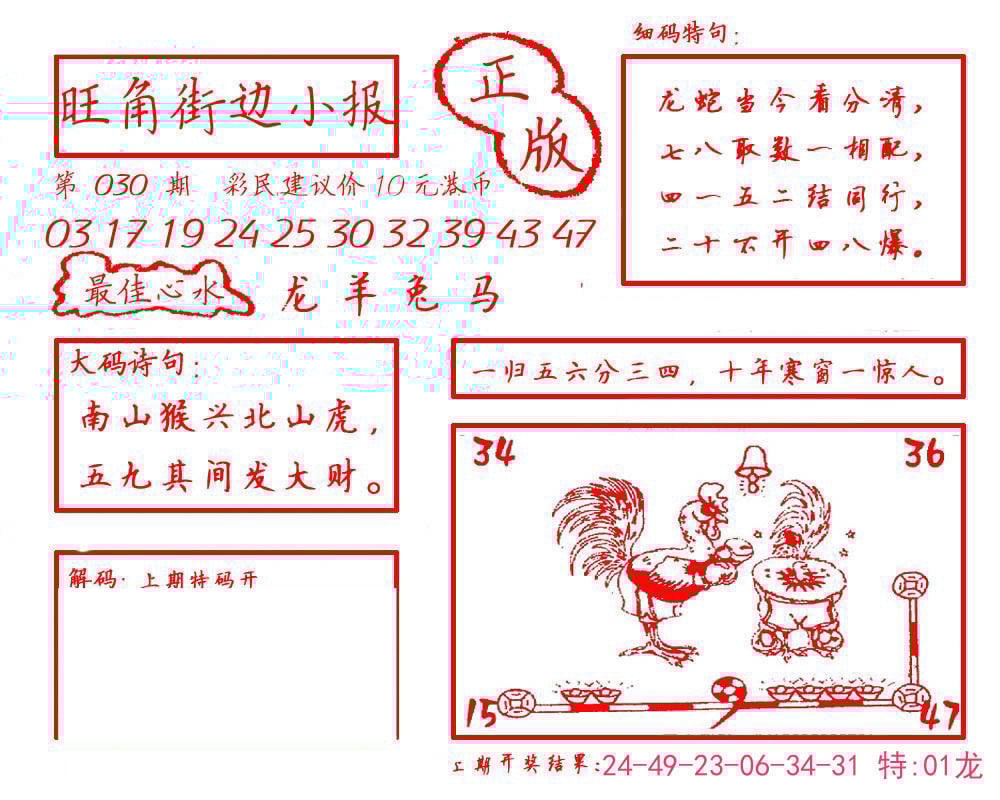 旺角街边小报
正
版
第 030 期 彩民建议价 10 元港币
03 17 19 24 25 30 32 39 43 47
最佳心水
龙 羊 兔 马
细码特句:
龙蛇当今看分清,
七八取数一相配,
四一五二结同行,
二十不开四八爆。
大码诗句:
南山猴兴北山虎,
五九其间发大财。
一归五六分三四, 十年寒窗一惊人。
34
36
15
47
解码·上期特码开
上期开奖结果:24-49-23-06-34-31 特:01龙